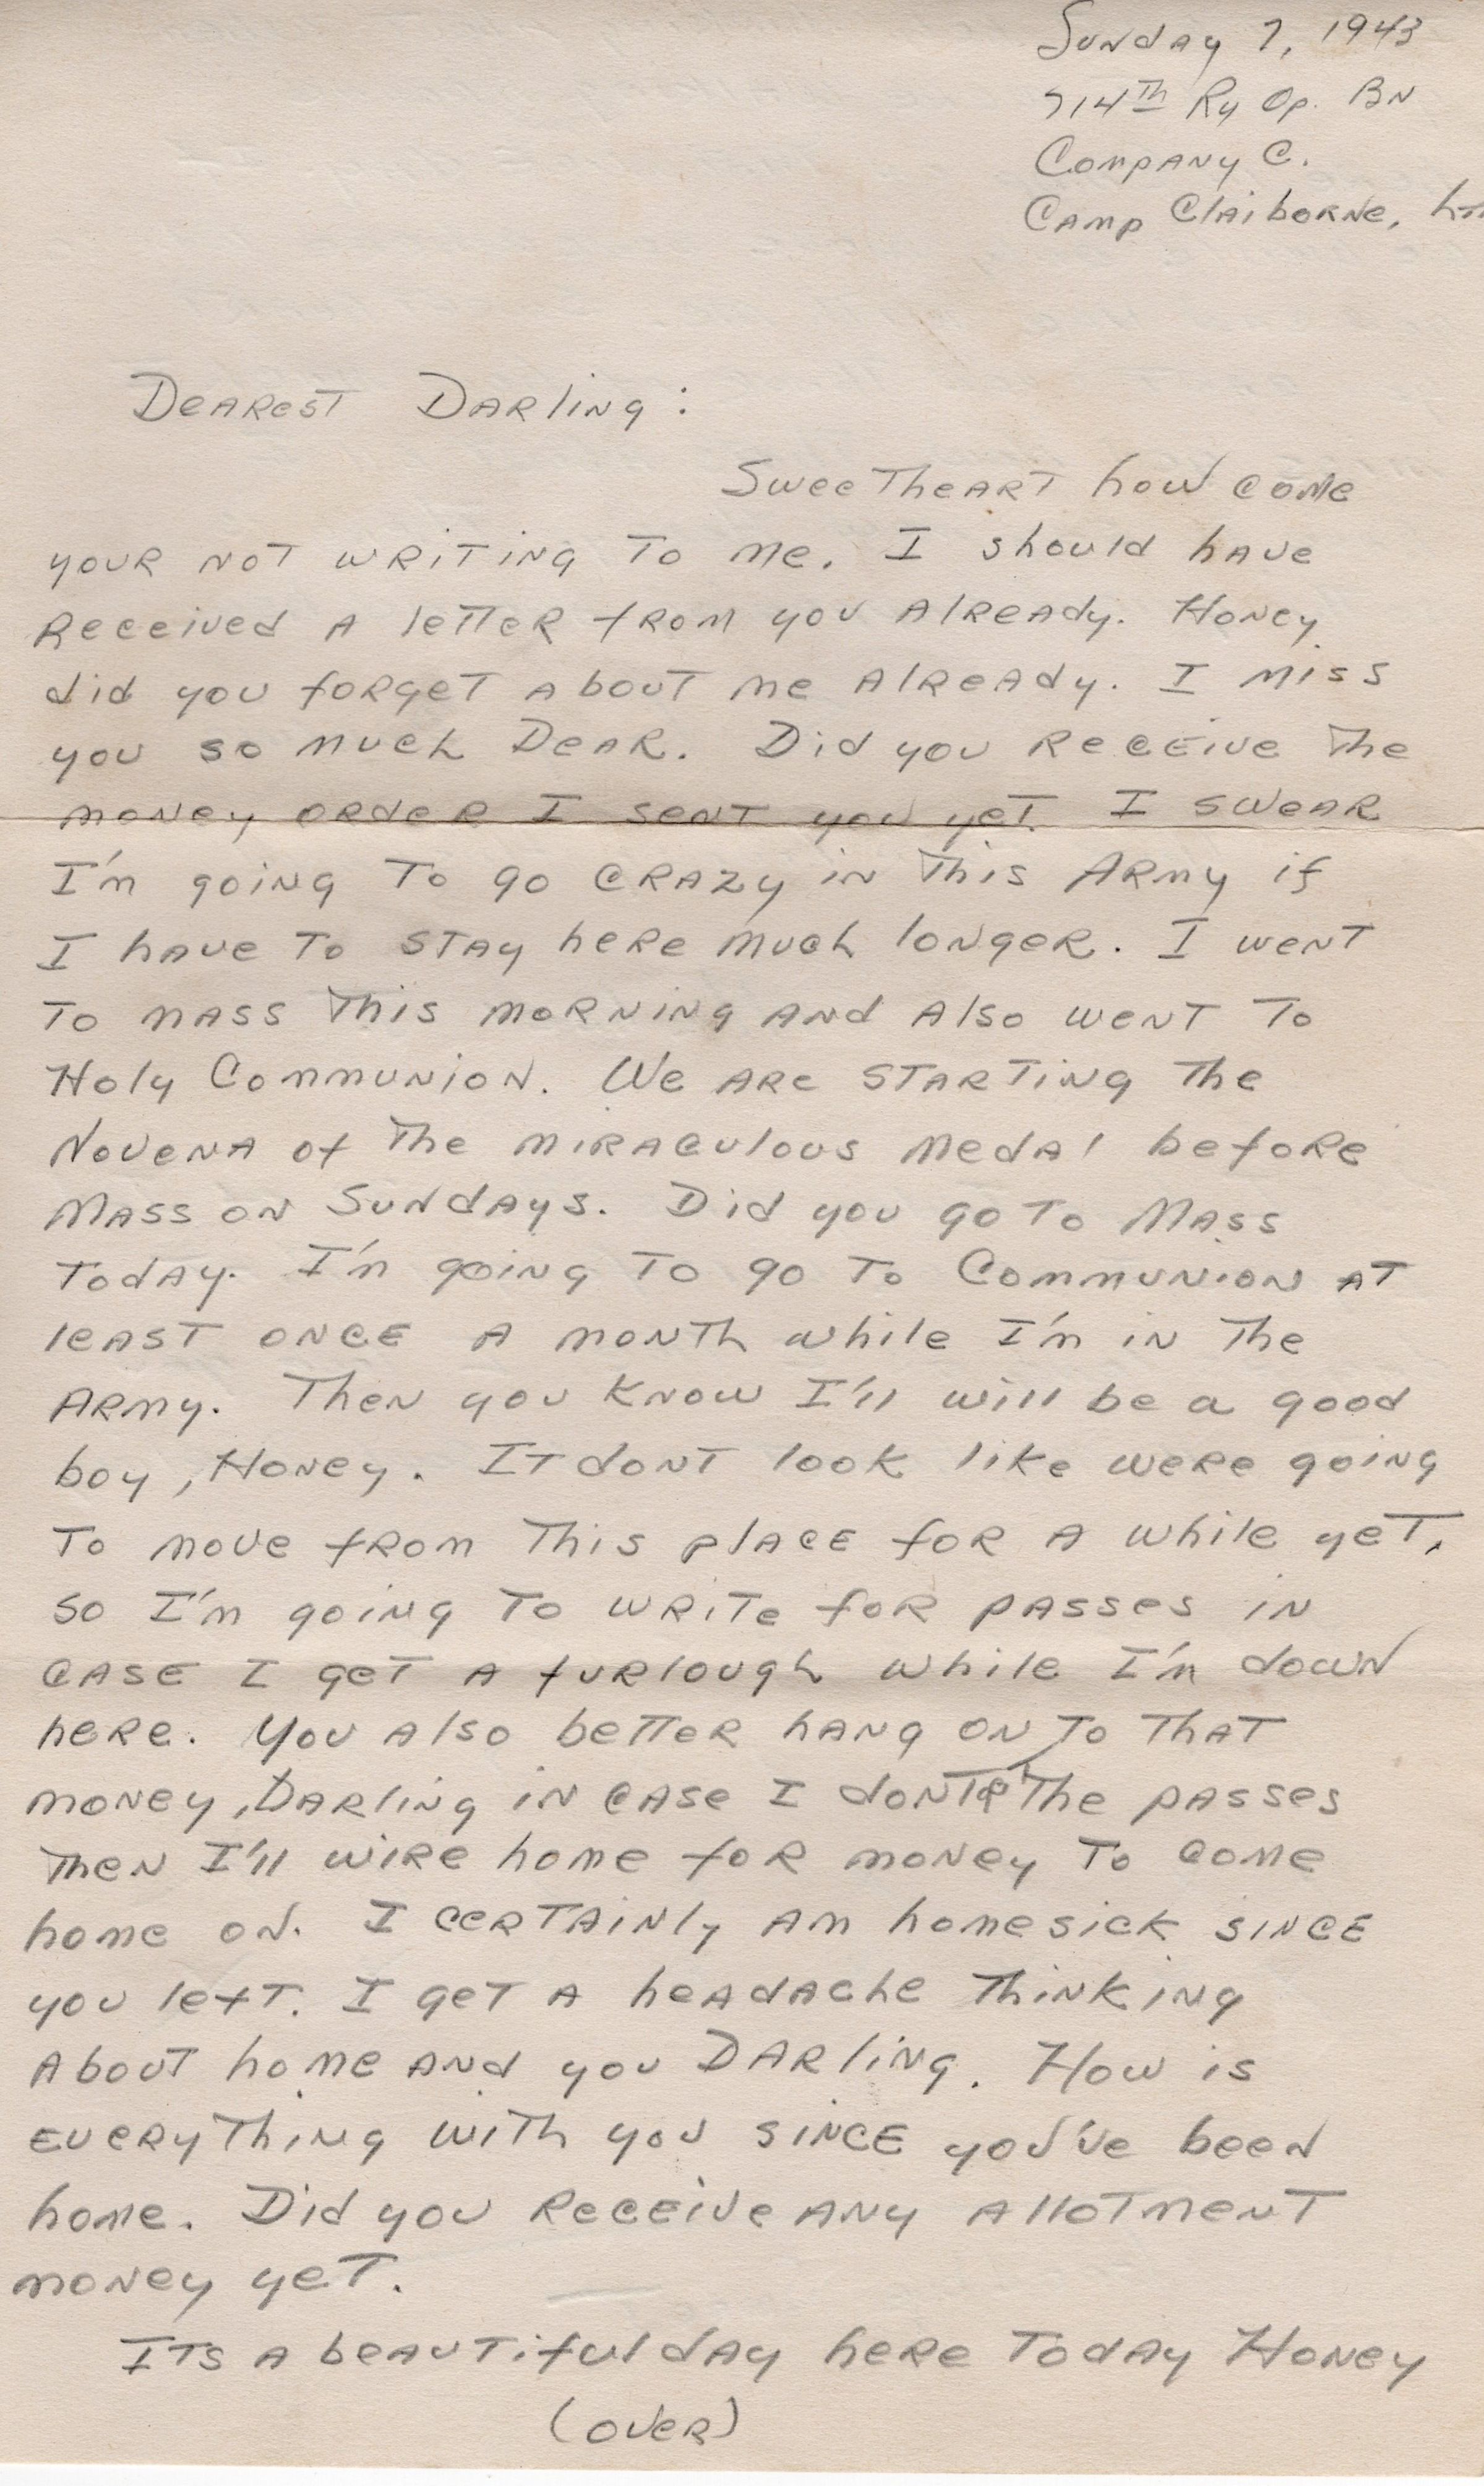 Sunday 7, 1943
714th Ry Op. Bn
Company C.
Camp Claiborne, La
Dearest Darling:
Sweetheart how come
your not writing to me. I should have
received a letter from you already. Honey
did you forget about me already. I miss
you so much Dear. Did you receive the
money order I sent you yet. I swear
I'm going to go crazy in this Army if
I have to stay here much longer. I went
to mass this morning and also went to
Holy Communion. We are starting the
Novena of the miraculous medal before
Mass on Sundays. Did you go to Mass
today. I'm going to go to Communion at
least once a month while I'm in the
Army. Then you know I'll will be a good
boy, Honey. It dont look like were going
to move from this place for a while yet,
so I'm going to write for passes in
case I get a furlough while I'm down
here. You also better hang on to that
money, Darling in case I dont the passes
then I'll wire home for money to come
home on. I certainly am homesick since
you left. I get a headache thinking
about home and you Darling. How is
everything with you since you've been
home. Did you receive any allotment
money yet.
Its a beautiful day here today Honey
(over)